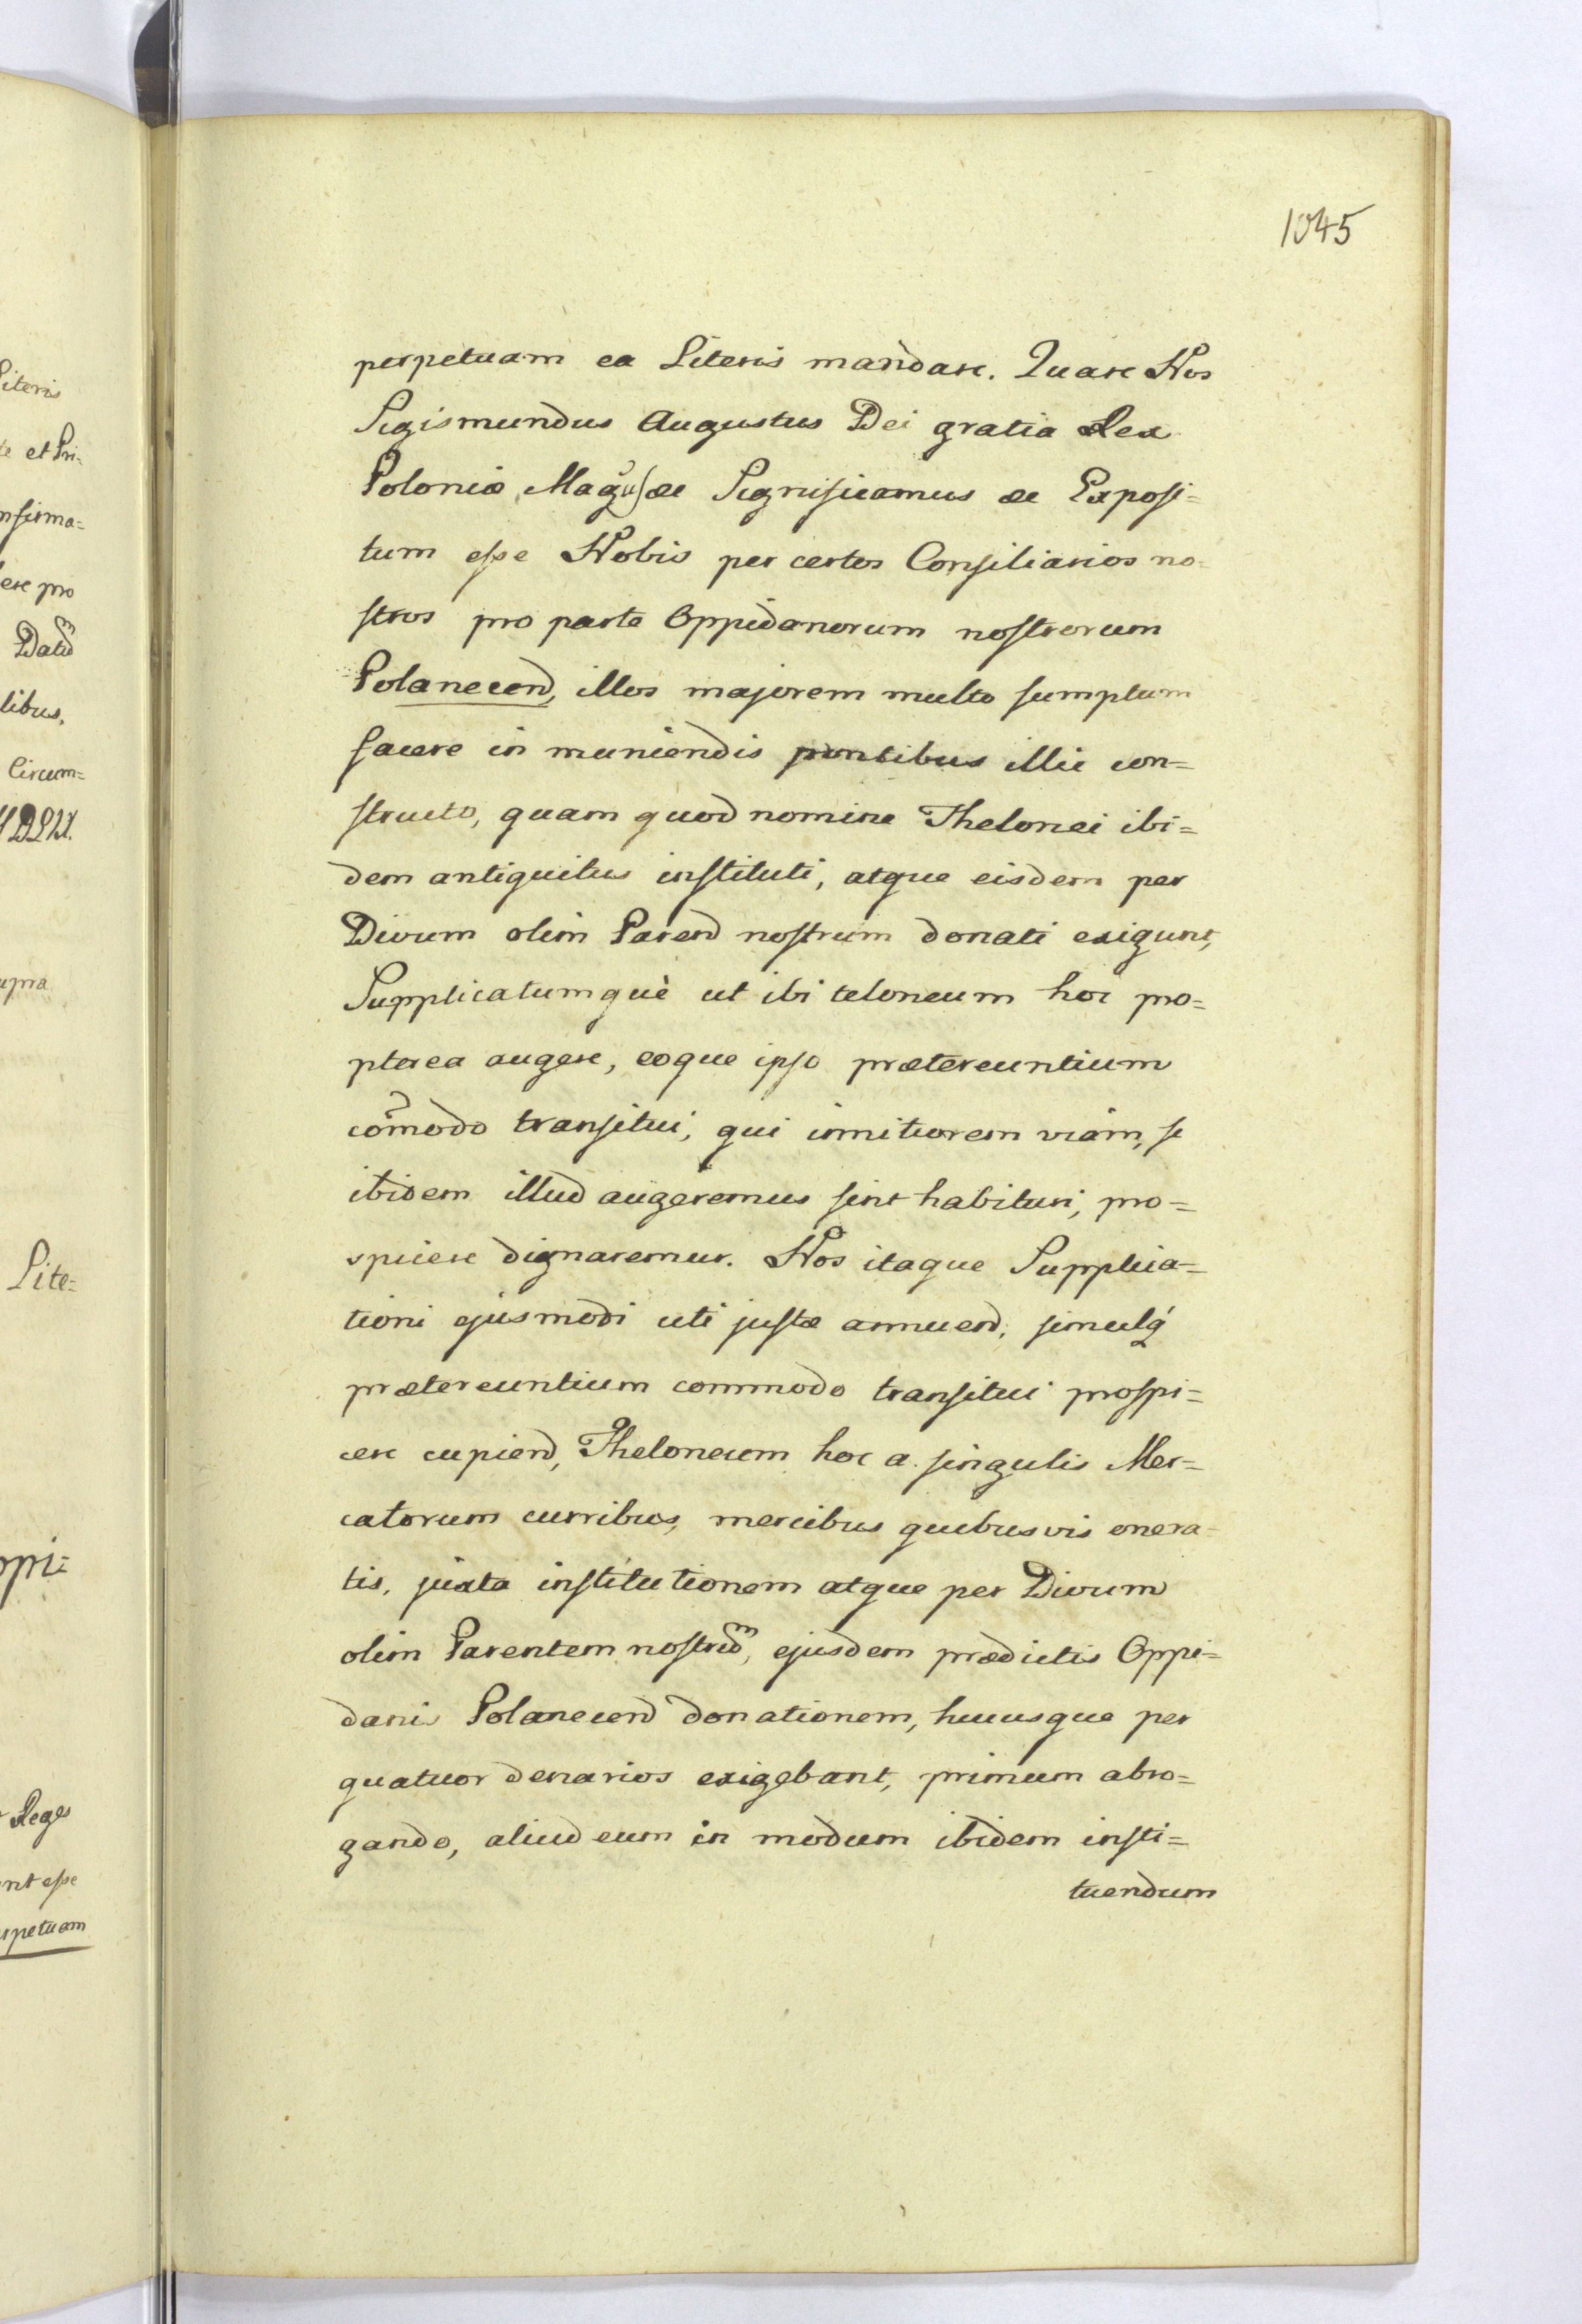 1045
perpetuam ea Literis mandare. Quare Nos
Sigismundus Augustus Dei gratia Rex
Poloniæ, Magūs æe Significamus æe Exposi=
tum esse Nobis per certos Consiliarios no=
stros pro parte Oppidanorum nostrorum
Polanecen, illos majorem multo sumptum
facere in muniendis pontibus illic con=
structo, quam quod nomine Thelonei ibi=
dem antiquitus instituti, atque eisdem per
Divum olim Paren nostrum donati exigunt,
Supplicatumquè ut ibi teloneum hoc pro=
pterea augere, eoque ipso prætereuntium
com̃odo transitui, qui immitiorem viam, si
ibidem illud augeremus sint habituri, pro=
spicere dignaremur. Nos itaque Supplica=
tioni ejusmodi uti justæ annuen, simulq́
prætereuntium commodo transitui prospi=
cere cupien, Theloneum hoc a singulis Mer=
catorum curribus, mercibus quibusvis onera=
tis, juxta institutionem atque per Divum
olim Parentem nostrum, ejusdem prædictis Oppi=
danis Polanecen donationem, hucusque per
quatuor denarios exigebant, primum abro=
gando, aliud eum in modum ibidem insti=
tuendum
Literis
te et Pri=
nfirma=
ere pro
Datum
libus,
Circum=
upra
Lite=
ppi=
Reges
nt esse
rpetuam